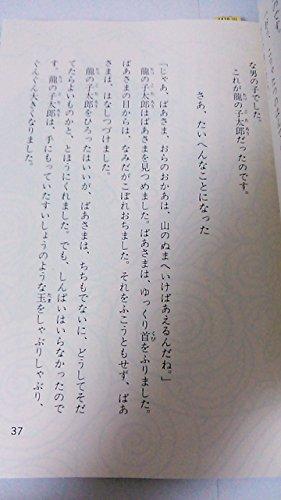 な男の子でした。
これが龍の子太郎だったのです。
さあ、たいへんなことになった
「じゃあ、ばあさま、おらのおかあは、山のぬまへいけばあえるんだね。」
龍の子太郎はばあさまを見つめました。ばあさまは、ゆっくり首をふりました。
ばあさまの目からは、なみだがこぼれおちました。それをふこうともせず、ばあ
さまは、はなしつづけました。
龍の子太郎をひろったはいいが、ばあさまは、ちちもでないに、どうしてそだ
てたらよいものかと、とほうにくれました。でも、しんぱいはいらなかったので
す。龍の子太郎は、手にもっていたすいしょうのような玉をしゃぶりしゃぶり、
ぐんぐん大きくなりました。
37